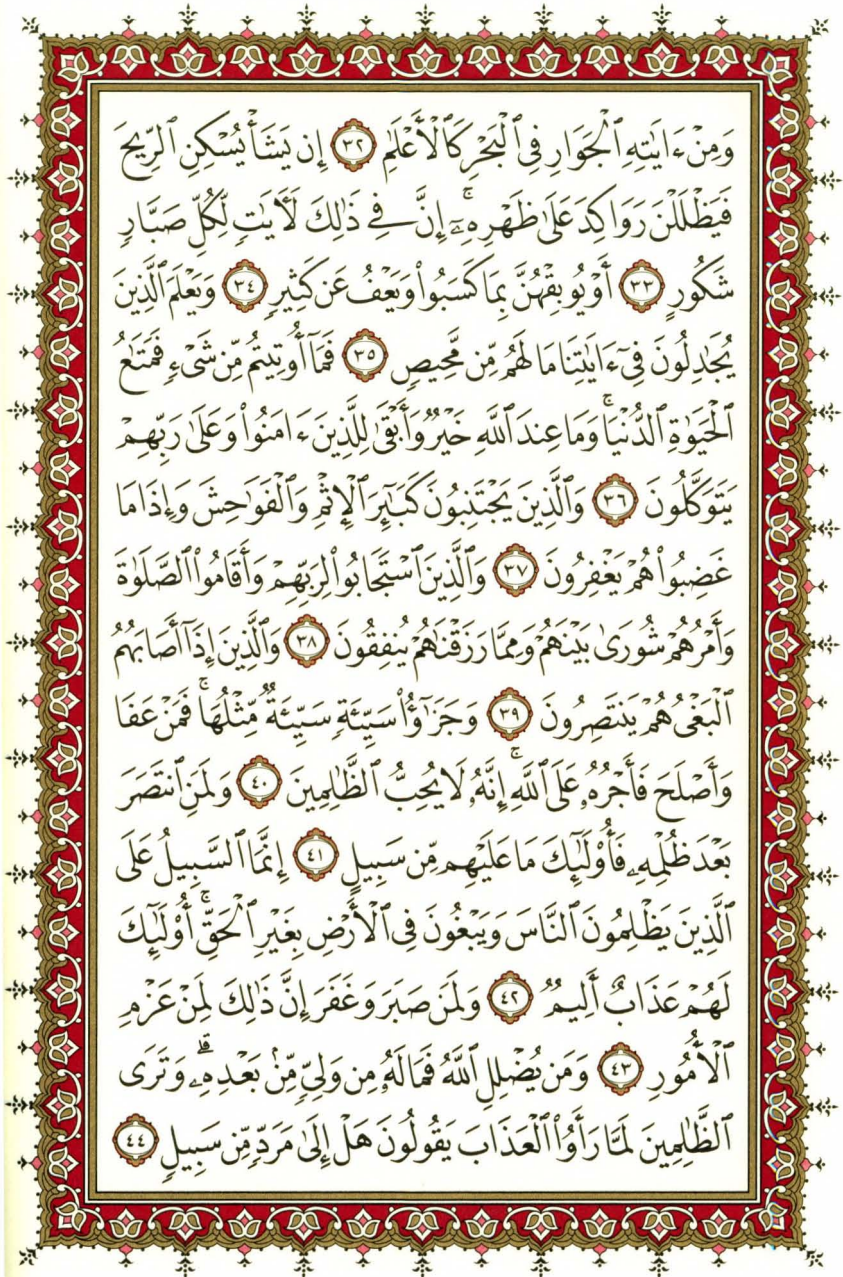 وَمِنْ ءَايَٰتِهِ ٱلْجَوَارِ فِى ٱلْبَحْرِ كَٱلْأَعْلَٰمِ ٣٢ إِن يَشَأْ يُسْكِنِ ٱلرِّيحَ
فَيَظْلَلْنَ رَوَاكِدَ عَلَىٰ ظَهْرِهِۦٓ ۚ إِنَّ فِى ذَٰلِكَ لَءَايَٰتٍ لِّكُلِّ صَبَّارٍ
شَكُورٍ ٣٣ أَوْ يُوبِقْهُنَّ بِمَا كَسَبُوا۟ وَيَعْفُ عَن كَثِيرٍ ٣٤ وَيَعْلَمَ ٱلَّذِينَ
يُجَٰدِلُونَ فِىٓ ءَايَٰتِنَا مَا لَهُم مِّن مَّحِيصٍ ٣٥ فَمَآ أُوتِيتُم مِّن شَىْءٍ فَمَتَٰعُ
ٱلْحَيَوٰةِ ٱلدُّنْيَا ۚ وَمَا عِندَ ٱللَّهِ خَيْرٌ وَأَبْقَىٰ لِلَّذِينَ ءَامَنُوا۟ وَعَلَىٰ رَبِّهِمْ
يَتَوَكَّلُونَ ٣٦ وَٱلَّذِينَ يَجْتَنِبُونَ كَبَٰٓئِرَ ٱلْإِثْمِ وَٱلْفَوَٰحِشَ وَإِذَا مَا
غَضِبُوا۟ هُمْ يَغْفِرُونَ ٣٧ وَٱلَّذِينَ ٱسْتَجَابُوا۟ لِرَبِّهِمْ وَأَقَامُوا۟ ٱلصَّلَوٰةَ
وَأَمْرُهُمْ شُورَىٰ بَيْنَهُمْ وَمِمَّا رَزَقْنَٰهُمْ يُنفِقُونَ ٣٨ وَٱلَّذِينَ إِذَآ أَصَابَهُمُ
ٱلْبَغْىُ هُمْ يَنتَصِرُونَ ٣٩ وَجَزَٰٓؤُا۟ سَيِّئَةٍ سَيِّئَةٌ مِّثْلُهَا ۖ فَمَنْ عَفَا
وَأَصْلَحَ فَأَجْرُهُۥ عَلَى ٱللَّهِ ۚ إِنَّهُۥ لَا يُحِبُّ ٱلظَّٰلِمِينَ ٤٠ وَلَمَنِ ٱنتَصَرَ
بَعْدَ ظُلْمِهِۦ فَأُو۟لَٰٓئِكَ مَا عَلَيْهِم مِّن سَبِيلٍ ٤١ إِنَّمَا ٱلسَّبِيلُ عَلَى
ٱلَّذِينَ يَظْلِمُونَ ٱلنَّاسَ وَيَبْغُونَ فِى ٱلْأَرْضِ بِغَيْرِ ٱلْحَقِّ ۚ أُو۟لَٰٓئِكَ
لَهُمْ عَذَابٌ أَلِيمٌ ٤٢ وَلَمَن صَبَرَ وَغَفَرَ إِنَّ ذَٰلِكَ لَمِنْ عَزْمِ
ٱلْأُمُورِ ٤٣ وَمَن يُضْلِلِ ٱللَّهُ فَمَا لَهُۥ مِن وَلِىٍّ مِّنۢ بَعْدِهِۦ ۗ وَتَرَى
ٱلظَّٰلِمِينَ لَمَّا رَأَوُا۟ ٱلْعَذَابَ يَقُولُونَ هَلْ إِلَىٰ مَرَدٍّ مِّن سَبِيلٍ ٤٤